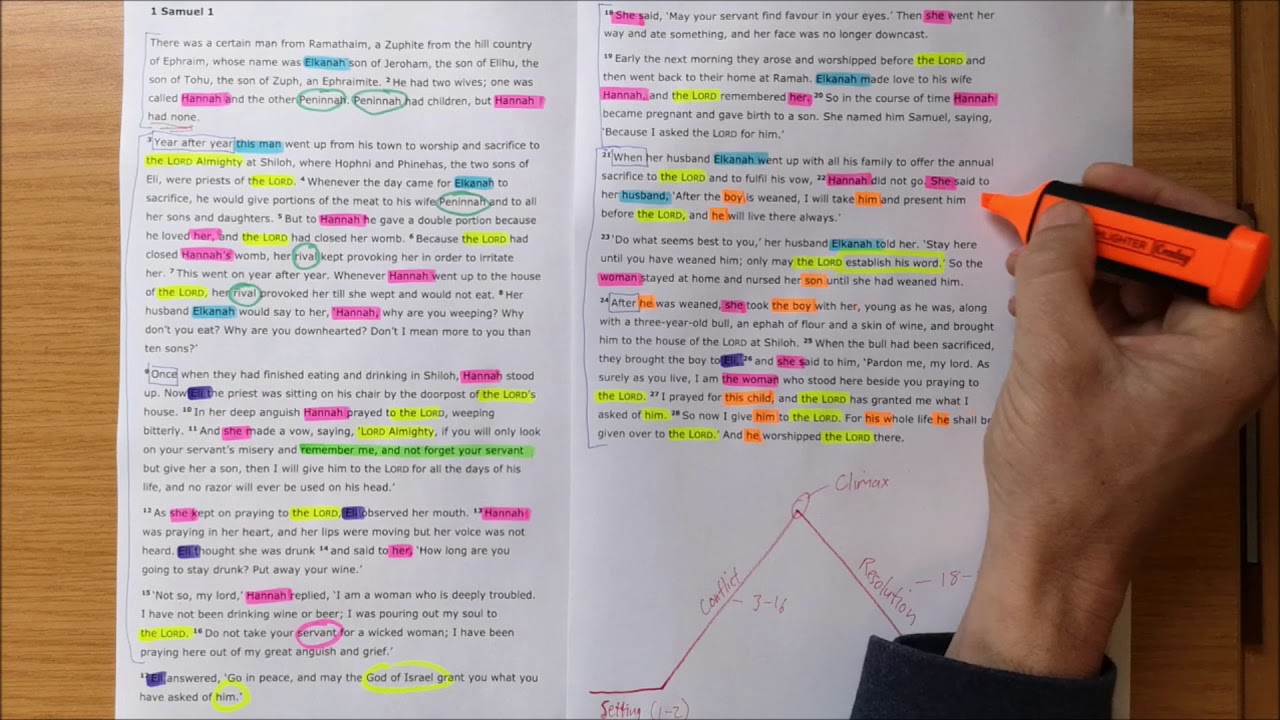 1 Samuel 1
There was a certain man from Ramathaim, a Zuphite from the hill country
of Ephraim, whose name was Elkanah son of Jeroham, the son of Elihu, the
son of Tohu, the son of Zuph, an Ephraimite. 2 He had two wives; one was
called Hannah and the other Peninnah. Peninnah had children, but Hannah
had none.
3 Year after year this man went up from his town to worship and sacrifice to
the LORD Almighty at Shiloh, where Hophni and Phinehas, the two sons of
Eli, were priests of the LORD. 4 Whenever the day came for Elkanah to
sacrifice, he would give portions of the meat to his wife Peninnah and to all
her sons and daughters. 5 But to Hannah he gave a double portion because
he loved her, and the LORD had closed her womb. 6 Because the LORD had
closed Hannah's womb, her rival kept provoking her in order to irritate
her. 7 This went on year after year. Whenever Hannah went up to the house
of the LORD, her rival provoked her till she wept and would not eat. 8 Her
husband Elkanah would say to her, 'Hannah, why are you weeping? Why
don't you eat? Why are you downhearted? Don't I mean more to you than
ten sons?'
9 Once when they had finished eating and drinking in Shiloh, Hannah stood
up. Now Eli the priest was sitting on his chair by the doorpost of the LORD's
house. 10 In her deep anguish Hannah prayed to the LORD, weeping
bitterly. 11 And she made a vow, saying, 'LORD Almighty, if you will only look
on your servant's misery and remember me, and not forget your servant
but give her a son, then I will give him to the LORD for all the days of his
life, and no razor will ever be used on his head.'
12 As she kept on praying to the LORD, Eli observed her mouth. 13 Hannah
was praying in her heart, and her lips were moving but her voice was not
heard. Eli thought she was drunk 14 and said to her, 'How long are you
going to stay drunk? Put away your wine.'
15 'Not so, my lord,' Hannah replied, 'I am a woman who is deeply troubled.
I have not been drinking wine or beer; I was pouring out my soul to
the LORD. 16 Do not take your servant for a wicked woman; I have been
praying here out of my great anguish and grief.'
17 Eli answered, 'Go in peace, and may the God of Israel grant you what you
have asked of him.'
18 She said, 'May your servant find favour in your eyes.' Then she went her
way and ate something, and her face was no longer downcast.
19 Early the next morning they arose and worshipped before the LORD and
then went back to their home at Ramah. Elkanah made love to his wife
Hannah, and the LORD remembered her. 20 So in the course of time Hannah
became pregnant and gave birth to a son. She named him Samuel, saying,
'Because I asked the LORD for him.'
21 When her husband Elkanah went up with all his family to offer the annual
sacrifice to the LORD and to fulfil his vow, 22 Hannah did not go. She said to
her husband, 'After the boy is weaned, I will take him and present him
before the LORD, and he will live there always.'
23 'Do what seems best to you,' her husband Elkanah told her. 'Stay here
until you have weaned him; only may the LORD establish his word.' So the
woman stayed at home and nursed her son until she had weaned him.
24 After he was weaned, she took the boy with her, young as he was, along
with a three-year-old bull, an ephah of flour and a skin of wine, and brought
him to the house of the LORD at Shiloh. 25 When the bull had been sacrificed,
they brought the boy to Eli, 26 and she said to him, 'Pardon me, my lord. As
surely as you live, I am the woman who stood here beside you praying to
the LORD. 27 I prayed for this child, and the LORD has granted me what I
asked of him. 28 So now I give him to the LORD. For his whole life he shall be
given over to the LORD.' And he worshipped the LORD there.
Climax
Conflict
- 3-16
Resolution
- 18-
Setting (1-2)